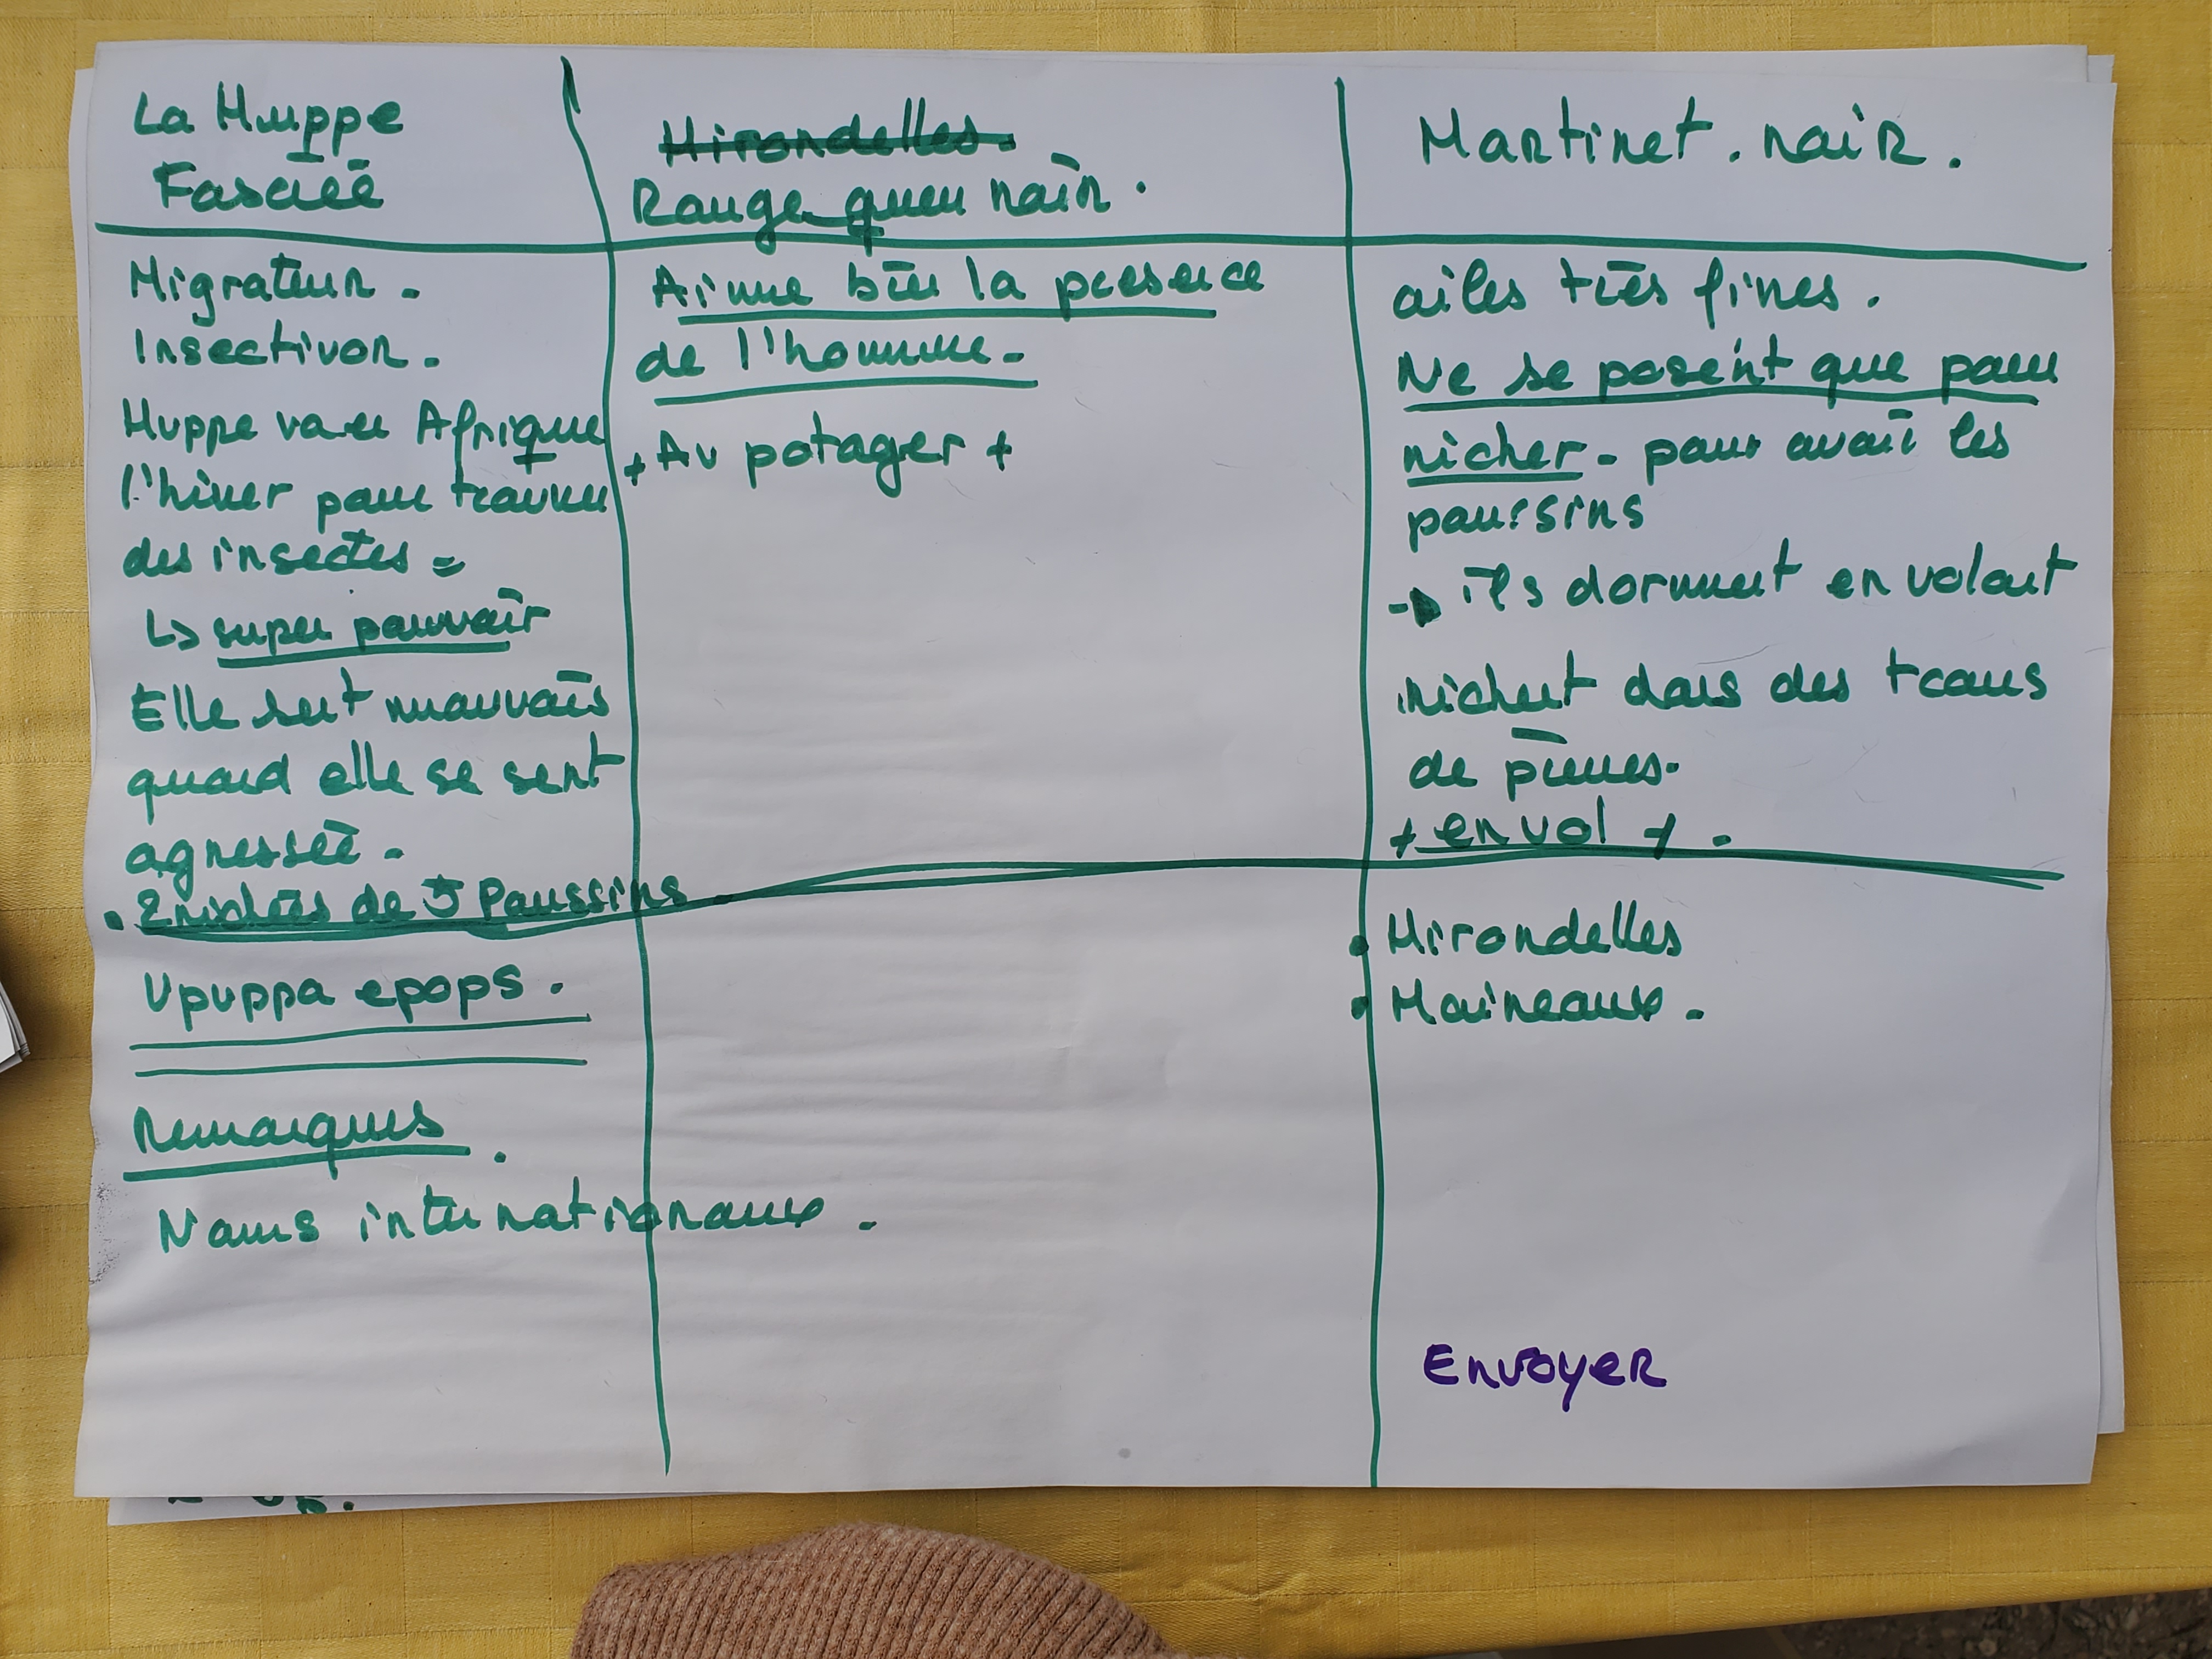 La Huppe
Fasciée
Migrateur.
Insectivor.
Huppe va en Afrique
l'hiver pour trouver
des insectes =
↳ super pouvoir
Elle sent mauvais
quand elle se sent
agressée.
. 2 nichées de 5 Poussins.
Upuppa epops.
Remarques.
Noms internationaux.
Hirondelles.
Rouge queu noir.
Aime bien la presence
de l'homme.
+ Au potager +
Martinet. noir.
ailes très fines.
Ne se posent que pour
nicher - pour avoir les
poussins
→ ils dorment en volant
nichent dans des trous
de pierres.
+ en vol +.
. Hirondelles
. Moineaux.
Envoyer